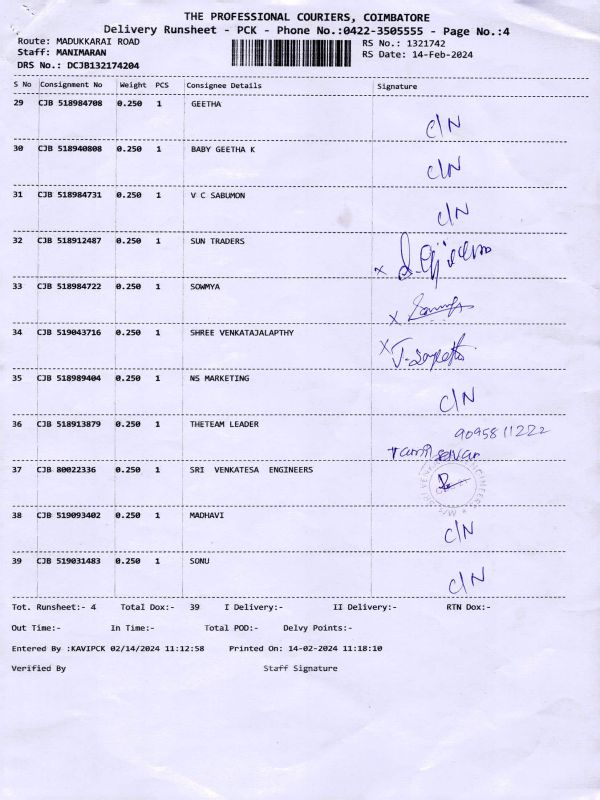 THE PROFESSIONAL COURIERS, COIMBATORE
Delivery Runsheet - PCK - Phone No.:0422-3505555 - Page No.:4
Route: MADUKKARAI ROAD RS No.: 1321742
Staff: MANIMARAN RS Date: 14-Feb-2024
DRS No.: DCJB132174204
S No Consignment No Weight PCS Consignee Details Signature
29 CJB 518984708 0.250 1 GEETHA C/N
30 CJB 518940808 0.250 1 BABY GEETHA K C/N
31 CJB 518984731 0.250 1 V C SABUMON C/N
32 CJB 518912487 0.250 1 SUN TRADERS x
33 CJB 518984722 0.250 1 SOWMYA x
34 CJB 519043716 0.250 1 SHREE VENKATAJALAPTHY x
35 CJB 518989404 0.250 1 NS MARKETING C/N
36 CJB 518913879 0.250 1 THETEAM LEADER 9095811222
Tamil selvan
37 CJB 80022336 0.250 1 SRI VENKATESA ENGINEERS
38 CJB 519093402 0.250 1 MADHAVI C/N
39 CJB 519031483 0.250 1 SONU C/N
Tot. Runsheet:- 4 Total Dox:- 39 I Delivery:- II Delivery:- RTN Dox:-
Out Time:- In Time:- Total POD:- Delvy Points:-
Entered By :KAVIPCK 02/14/2024 11:12:58 Printed On: 14-02-2024 11:18:10
Verified By Staff Signature